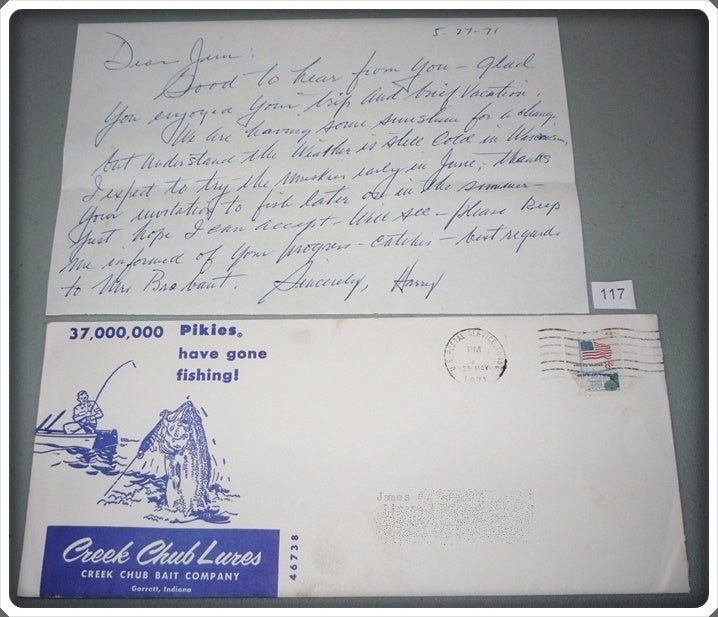 5-27-71
Dear Jim:
Good to hear from you - glad
you enjoyed your trip and brief vacation.
We are having some sunshine for a change
but understand the weather is still cold in Wisconsin,
I expect to try the muskies early in June, - thanks
your invitation to fish later on in the summer -
just hope I can accept - will see - please keep
me informed of your progress - catches - best regards
to Mrs Brabant. Sincerely, Harry
117
37,000,000 Pikies®
have gone
fishing!
U.S. POSTAL SERVICE, IN
PM
MAY
1971
Creek Chub Lures
CREEK CHUB BAIT COMPANY
Garrett, Indiana
46738
James